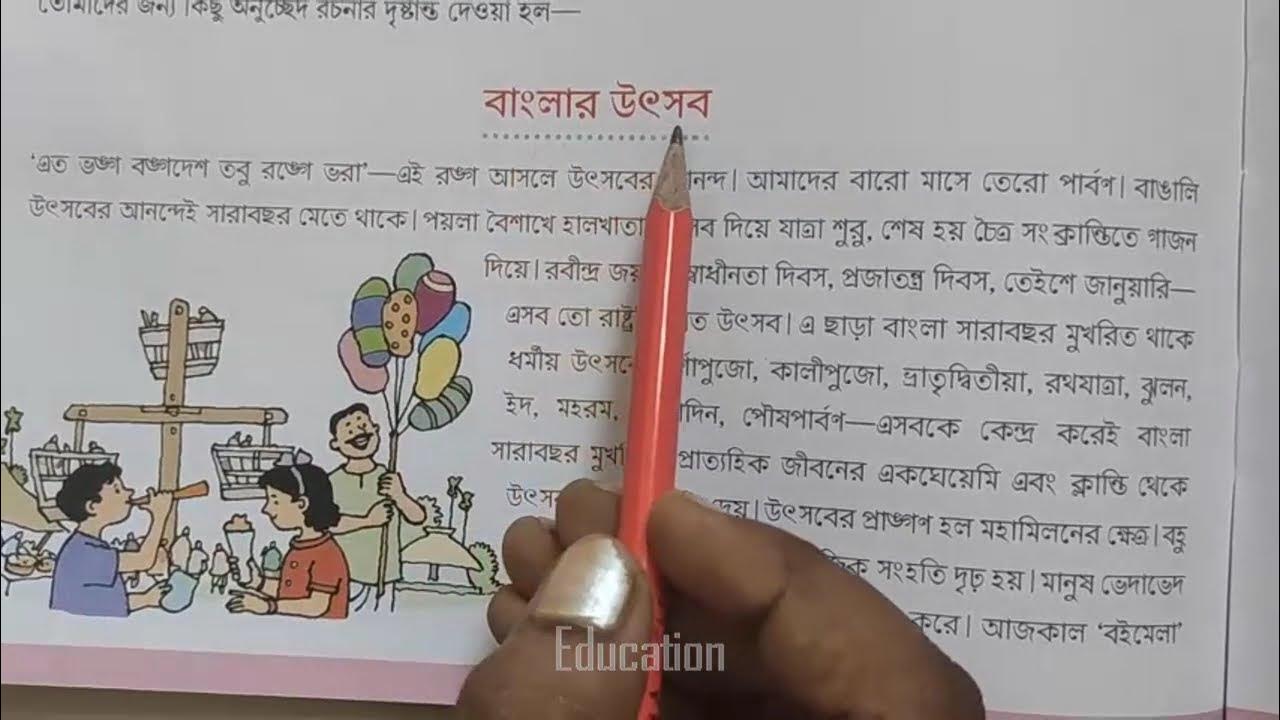 তোমাদের জন্য কিছু অনুচ্ছেদ রচনার দৃষ্টান্ত দেওয়া হল—
বাংলার উৎসব
‘এত ভঙ্গ বঙ্গদেশ তবু রঙ্গে ভরা’—এই রঙ্গ আসলে উৎসবের আনন্দ। আমাদের বারো মাসে তেরো পার্বণ। বাঙালি
উৎসবের আনন্দেই সারাবছর মেতে থাকে। পয়লা বৈশাখে হালখাতা দিয়ে যাত্রা শুরু, শেষ হয় চৈত্র সংক্রান্তিতে গাজন
দিয়ে। রবীন্দ্র স্বাধীনতা দিবস, প্রজাতন্ত্র দিবস, তেইশে জানুয়ারি—
এসব তো উৎসব। এ ছাড়া বাংলা সারাবছর মুখরিত থাকে
ধর্মীয় দুর্গাপুজো, কালীপুজো, ভ্রাতৃদ্বিতীয়া, রথযাত্রা, ঝুলন,
ইদ, মহরম, পৌষপার্বণ—এসবকে কেন্দ্র করেই বাংলা
সারাবছর প্রাত্যহিক জীবনের একঘেয়েমি এবং ক্লান্তি থেকে
দেয়। উৎসবের প্রাঙ্গণ হল মহামিলনের ক্ষেত্র। বহু
সংহতি দৃঢ় হয়। মানুষ ভেদাভেদ
করে। আজকাল ‘বইমেলা’
Education